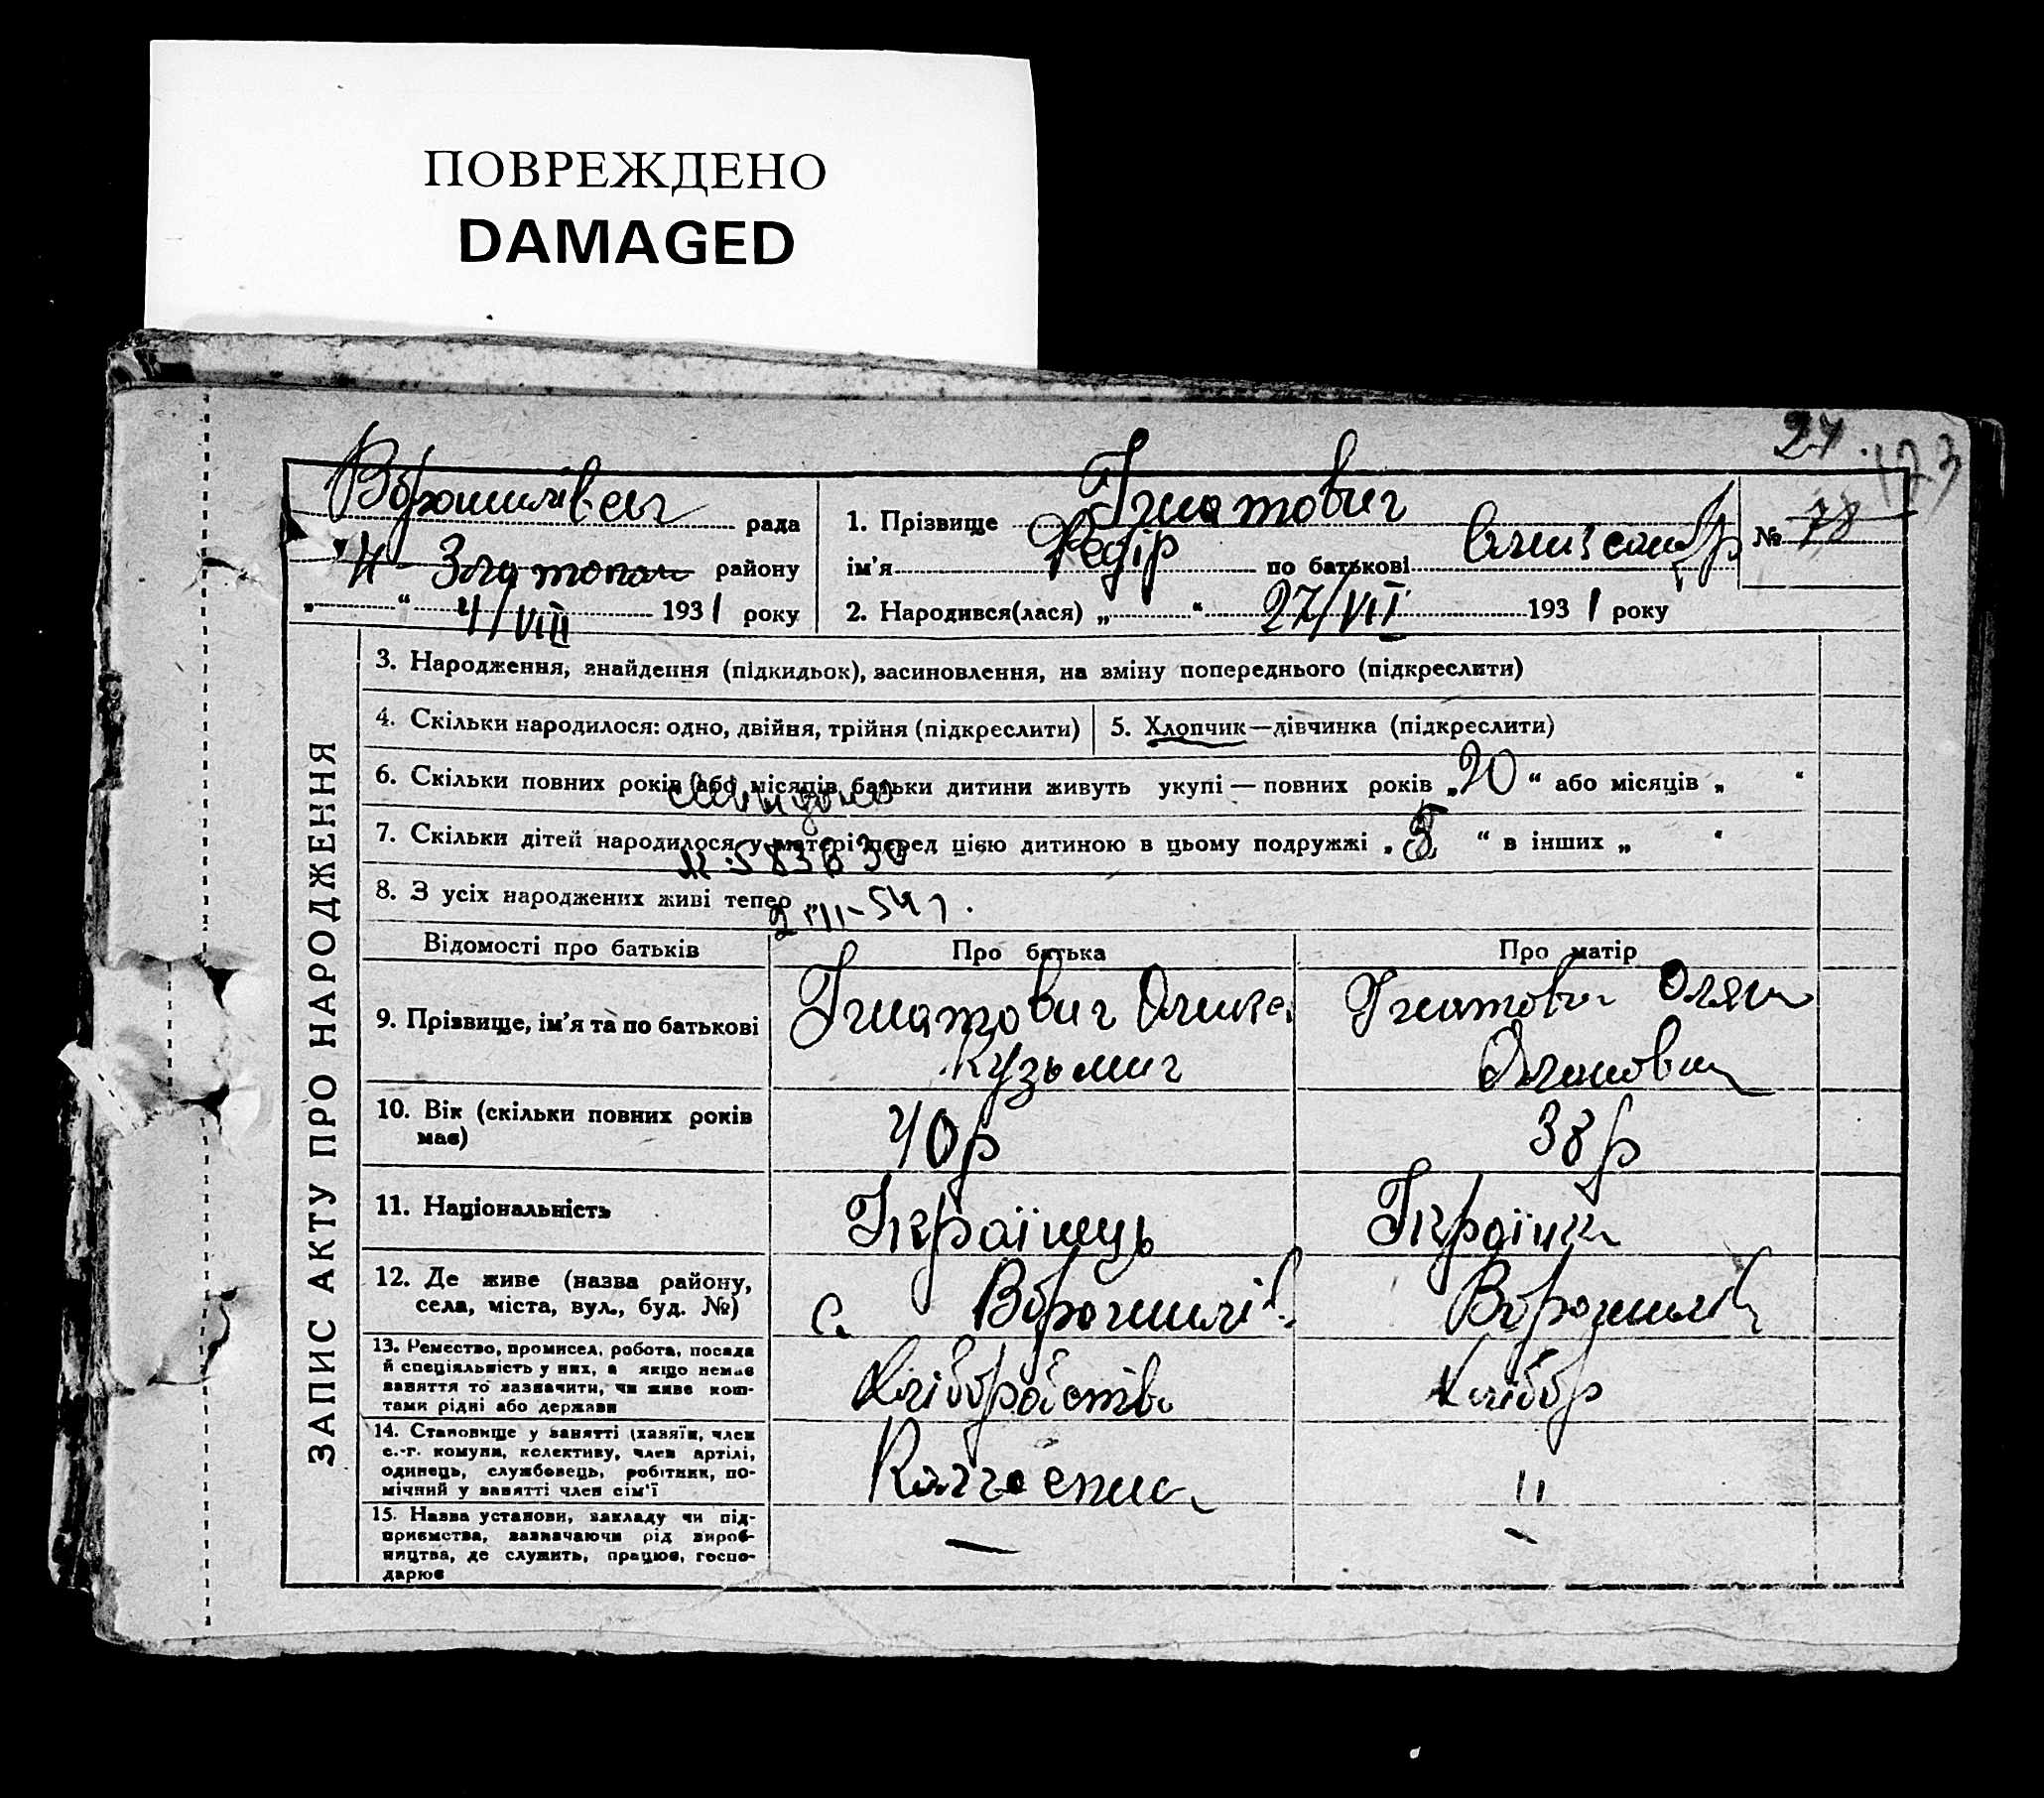 ПОВРЕЖДЕНО
DAMAGED
24.
173
рада
Н Златопол району
„ “ 4/VIII 1931 року
1. Прізвище Ігнатович
ім'я Федір по батькові
2. Народився(лася) „ “ 27/VII 1931 року
№ 78
ЗАПИС АКТУ ПРО НАРОДЖЕННЯ
3. Народження, знайдення (підкидьок), засиновлення, на зміну попереднього (підкреслити)
4. Скільки народилося: одно, двійня, трійня (підкреслити)
5. Хлопчик—дівчинка (підкреслити)
6. Скільки повних років (або місяців батьки дитини живуть укупі — повних років „20“ або місяців „ “
7. Скільки дітей народилося у матері перед цією дитиною в цьому подружжі „ “ в інших „ “
8. З усіх народжених живі тепер
Відомості про батьків
Про батька
Про матір
9. Прізвище, ім'я та по батькові
Ігнатович
Кузьмич
Ігнатови
10. Вік (скільки повних років
має)
40 р
38 р
11. Національність
Українець
Українк
12. Де живе (назва району,
села, міста, вул., буд. №)
с. Ворошилів
Ворошилів
13. Ремество, промисел, робота, посада
й спеціяльність у них, а якщо немає
заняття то зазначити, чи живе кош-
тами рідні або держави
Хліборобство
Хлібор
14. Становище у занятті (хазяїн, член
с.-г. комуни, колективу, член артілі,
одинець, службовець, робітник, по-
мічний у занятті член сім'ї
"
15. Назва установи, закладу чи під-
приємства, зазначаючи рід вироб-
ництва, де служить, працює, госпо-
дарює
—
—